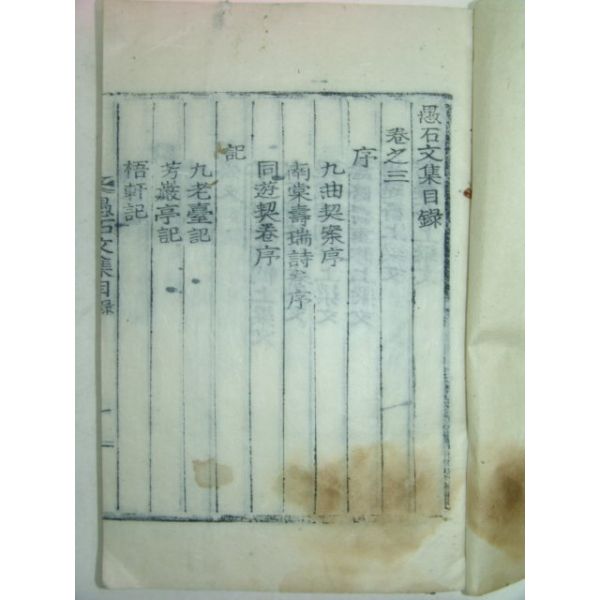 愚石文集目錄
卷之三
序
九曲契案序
南棠壽瑞詩叅序
同遊契卷序
記
九老臺記
芳叢亭記
梧軒記
愚石文集目錄